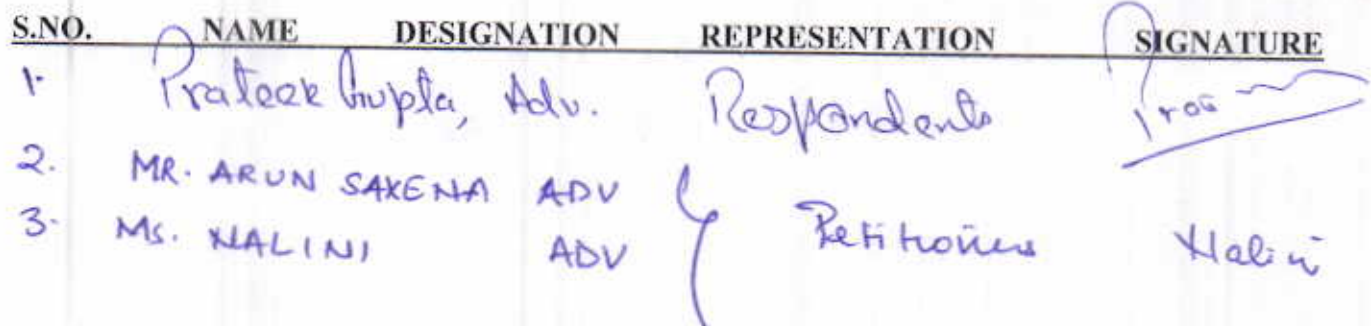 S.NO. NAME DESIGNATION REPRESENTATION SIGNATURE
1. Prateek Gupta, Adv. Respondents
2. MR. ARUN SAXENA ADV
3. Ms. NALINI ADV Petitioners Nalini